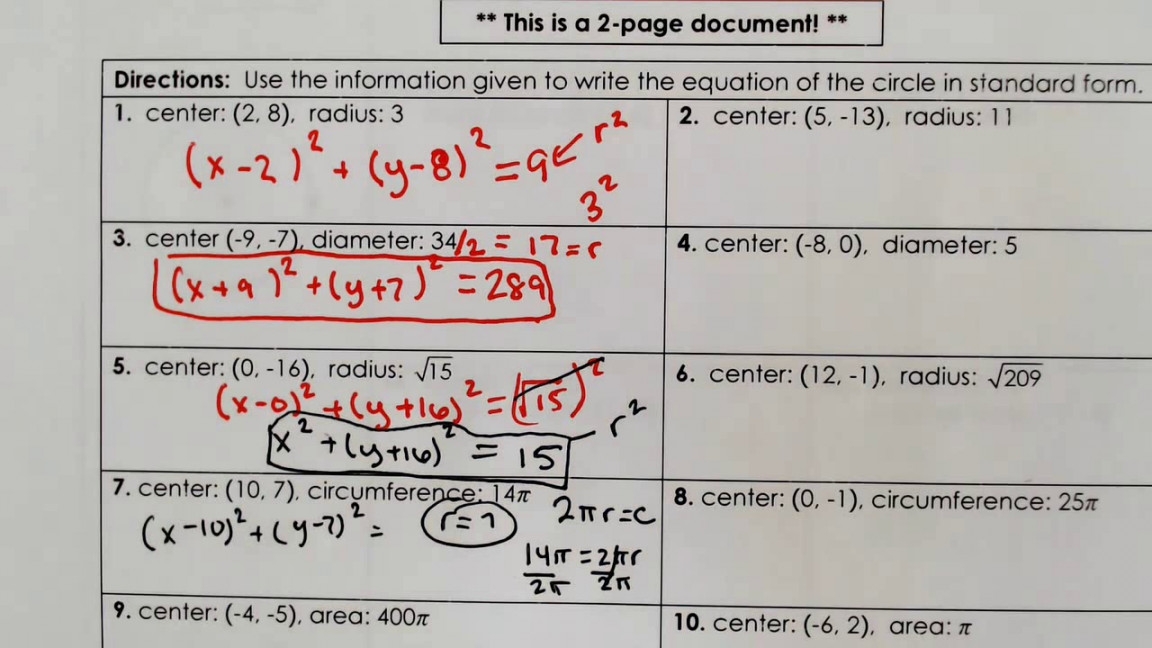 ** This is a 2-page document! **
Directions: Use the information given to write the equation of the circle in standard form.
1. center: (2, 8), radius: 3
(x-2)² + (y-8)² = 9 ← r²
3²
2. center: (5, -13), radius: 11
3. center (-9, -7), diameter: 34/2 = 17 = r
(x+9)² + (y+7)² = 289
4. center: (-8, 0), diameter: 5
5. center: (0, -16), radius: √15
(x-0)² + (y+16)² = (√15)²
x² + (y+16)² = 15
r²
6. center: (12, -1), radius: √209
7. center: (10, 7), circumference: 14π
(x-10)² + (y-7)² =
r=7
2πr=c
14π = 2πr
2π 2π
8. center: (0, -1), circumference: 25π
9. center: (-4, -5), area: 400π
10. center: (-6, 2), area: π